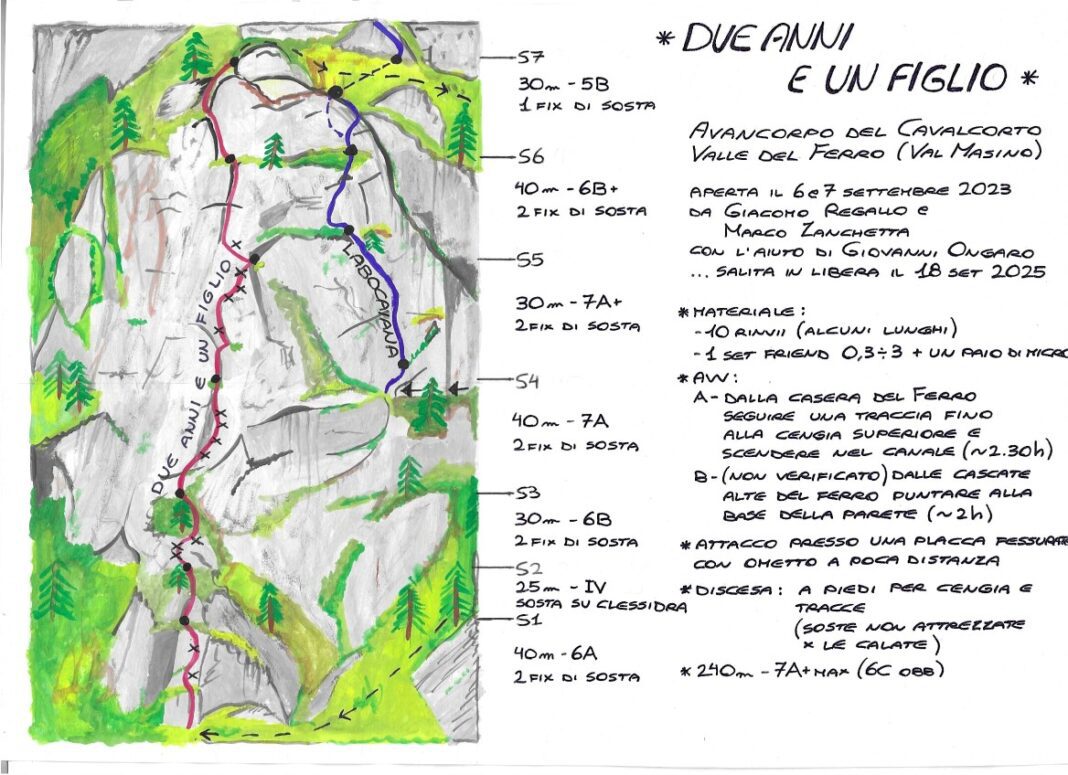 * DUE ANNI
E UN FIGLIO *
AVANCORPO DEL CAVALCORTO
VALLE DEL FERRO (VAL MASINO)
APERTA IL 6 e 7 SETTEMBRE 2023
DA GIACOMO REGALLO e
MARCO ZANCHETTA
CON L'AIUTO DI GIOVANNI ONGARO
... SALITA IN LIBERA IL 18 SET 2025
* MATERIALE:
- 10 RINVII (ALCUNI LUNGHI)
- 1 SET FRIEND 0,3÷3 + UN PAIO DI MICRO
* AVV:
A - DALLA CASERA DEL FERRO
SEGUIRE UNA TRACCIA FINO
ALLA CENGIA SUPERIORE E
SCENDERE NEL CANALE (~2.30h)
B - (NON VERIFICATO) DALLE CASCATE
ALTE DEL FERRO PUNTARE ALLA
BASE DELLA PARETE (~2h)
* ATTACCO PRESSO UNA PLACCA FESSURATA
CON OMETTO A POCA DISTANZA
* DISCESA: A PIEDI PER CENGIA E
TRACCE
(SOSTE NON ATTREZZATE
x LE CALATE)
* 240m - 7A+ MAX (6C OBB)
S7
30m - 5B
1 FIX DI SOSTA
S6
40m - 6B+
2 FIX DI SOSTA
S5
30m - 7A+
2 FIX DI SOSTA
S4
40m - 7A
2 FIX DI SOSTA
S3
30m - 6B
2 FIX DI SOSTA
S2
25m - IV
SOSTA SU CLESSIDRA
S1
40m - 6A
2 FIX DI SOSTA
DUE ANNI E UN FIGLIO
LABOCAIANA